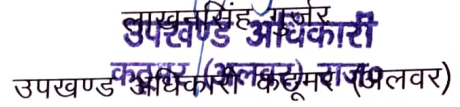 लाखनसिंह गुर्जर
उपखण्ड अधिकारी
कठूमर (अलवर) राज०
उपखण्ड अधिकारी कठूमर (अलवर)